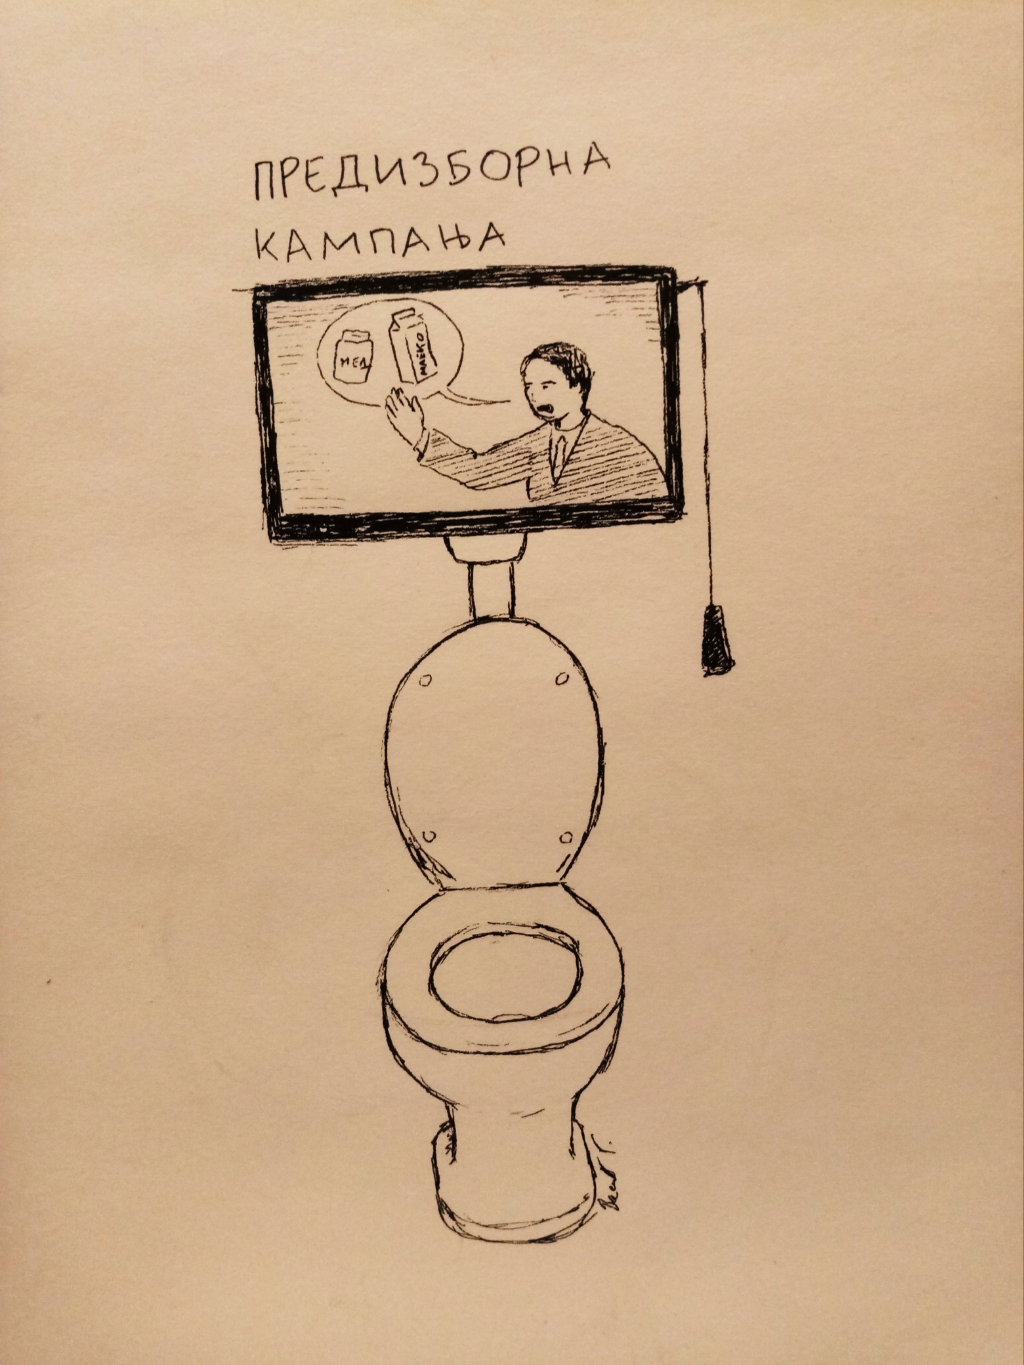 ПРЕДИЗБОРНА
КАМПАЊА
МЕД
МЛЕКО